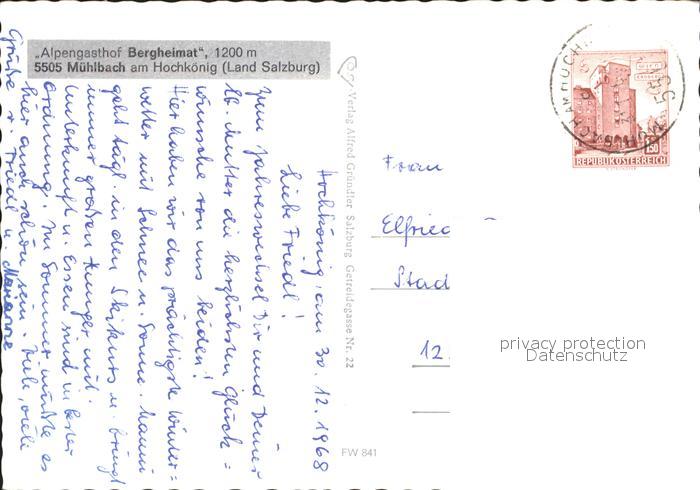 „Alpengasthof Bergheimat“, 1200 m
5505 Mühlbach am Hochkönig (Land Salzburg)
Hochkönig, am 30.12.1968
Liebe Friedl!
Zum Jahreswechsel Dir und Deiner
lb. Mutter die herzlichsten Glück=
wünsche von uns beiden!
Hier haben wir das prächtigste Winter=
wetter mit Schnee u. Sonne. Mauni
geht tägl. in den Skikurs u. bringt
immer großen Hunger mit.
Unterkunft u. Essen sind in bester
Ordnung. Im Sommer müßte es
hier auch schön sein. Viele, viele
Grüße v. Friedl u. Marianne
Verlag Alfred Gründler Salzburg Getreidegasse Nr. 22
FW 841
Frau
Elfried
Stad
12.
REPUBLIK ÖSTERREICH
1.50
privacy protection
Datenschutz